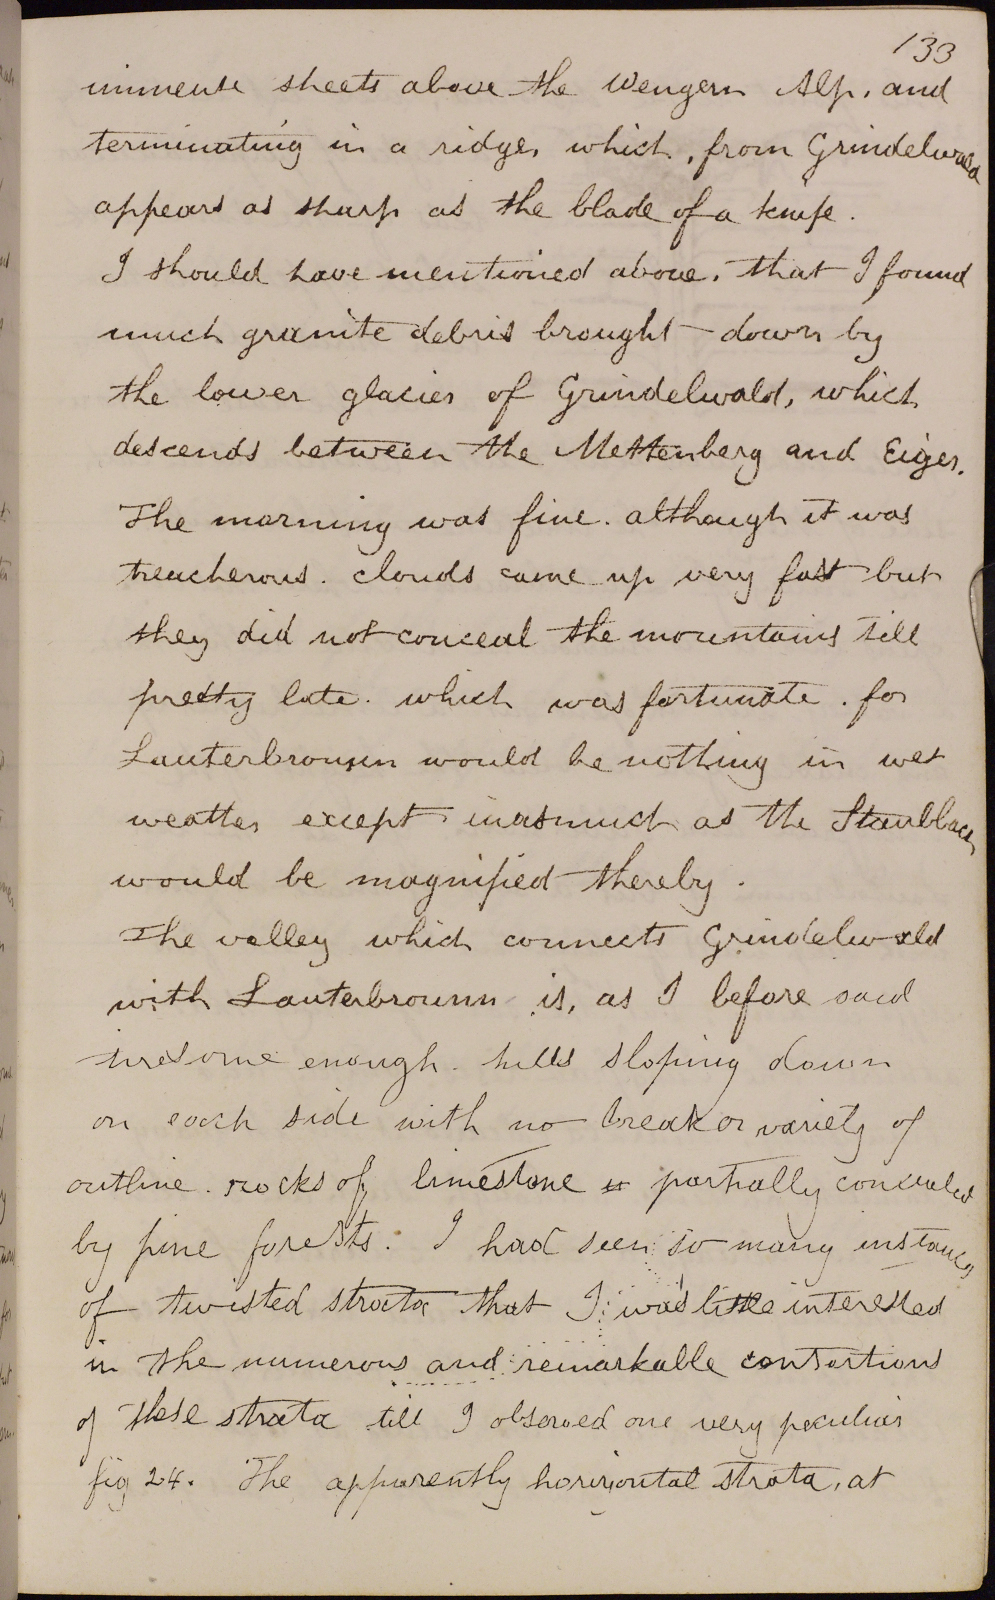 133
immense sheets above the Wengern Alp, and
terminating in a ridge, which, from Grindelwald
appears as sharp as the blade of a knife.
I should have mentioned above, that I found
much granite debris brought down by
the lower glacier of Grindelwald, which
descends between the Mettenberg and Eiger.
The morning was fine. although it was
treacherous. clouds came up very fast but
they did not conceal the mountains till
pretty late. which was fortunate. for
Lauterbrounn would be nothing in wet
weather except inasmuch as the Staubbach
would be magnified thereby.
The valley which connects Grindelwald
with Lauterbrounn is, as I before said
tiresome enough. hills sloping down
on each side with no break or variety of
outline. rocks of limestone partially concealed
by pine forests. I had seen so many instances
of twisted strata that I was little interested
in the numerous and remarkable contortions
of these strata till I observed one very peculiar
fig 24. The apparently horizontal strata, at